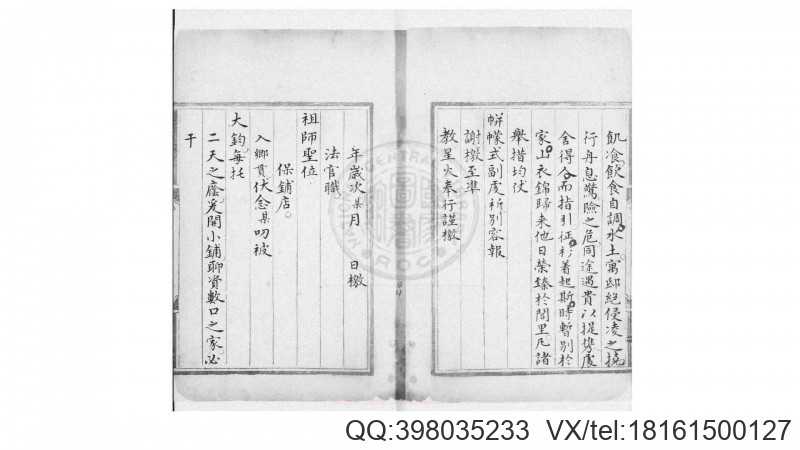 飢飡飲食自調水土寓邸絕侵凌之撓
行舟息驚險之危同途遇貴以提携處
舍得合而指引征衫著起斯時暫別於
家山衣錦歸來他日榮臻於閭里凡諸
舉措均伏
帡幪式副虔祈別容報
謝檄至準
教星火奉行謹檄
年歲次某月 日檄
法官職
祖師聖位
保鋪店。
入鄉貫伏念某叨被
大鈞每托
二天之庇爰開小鋪聊資數口之家必
干
QQ:398035233 VX/tel:18161500127